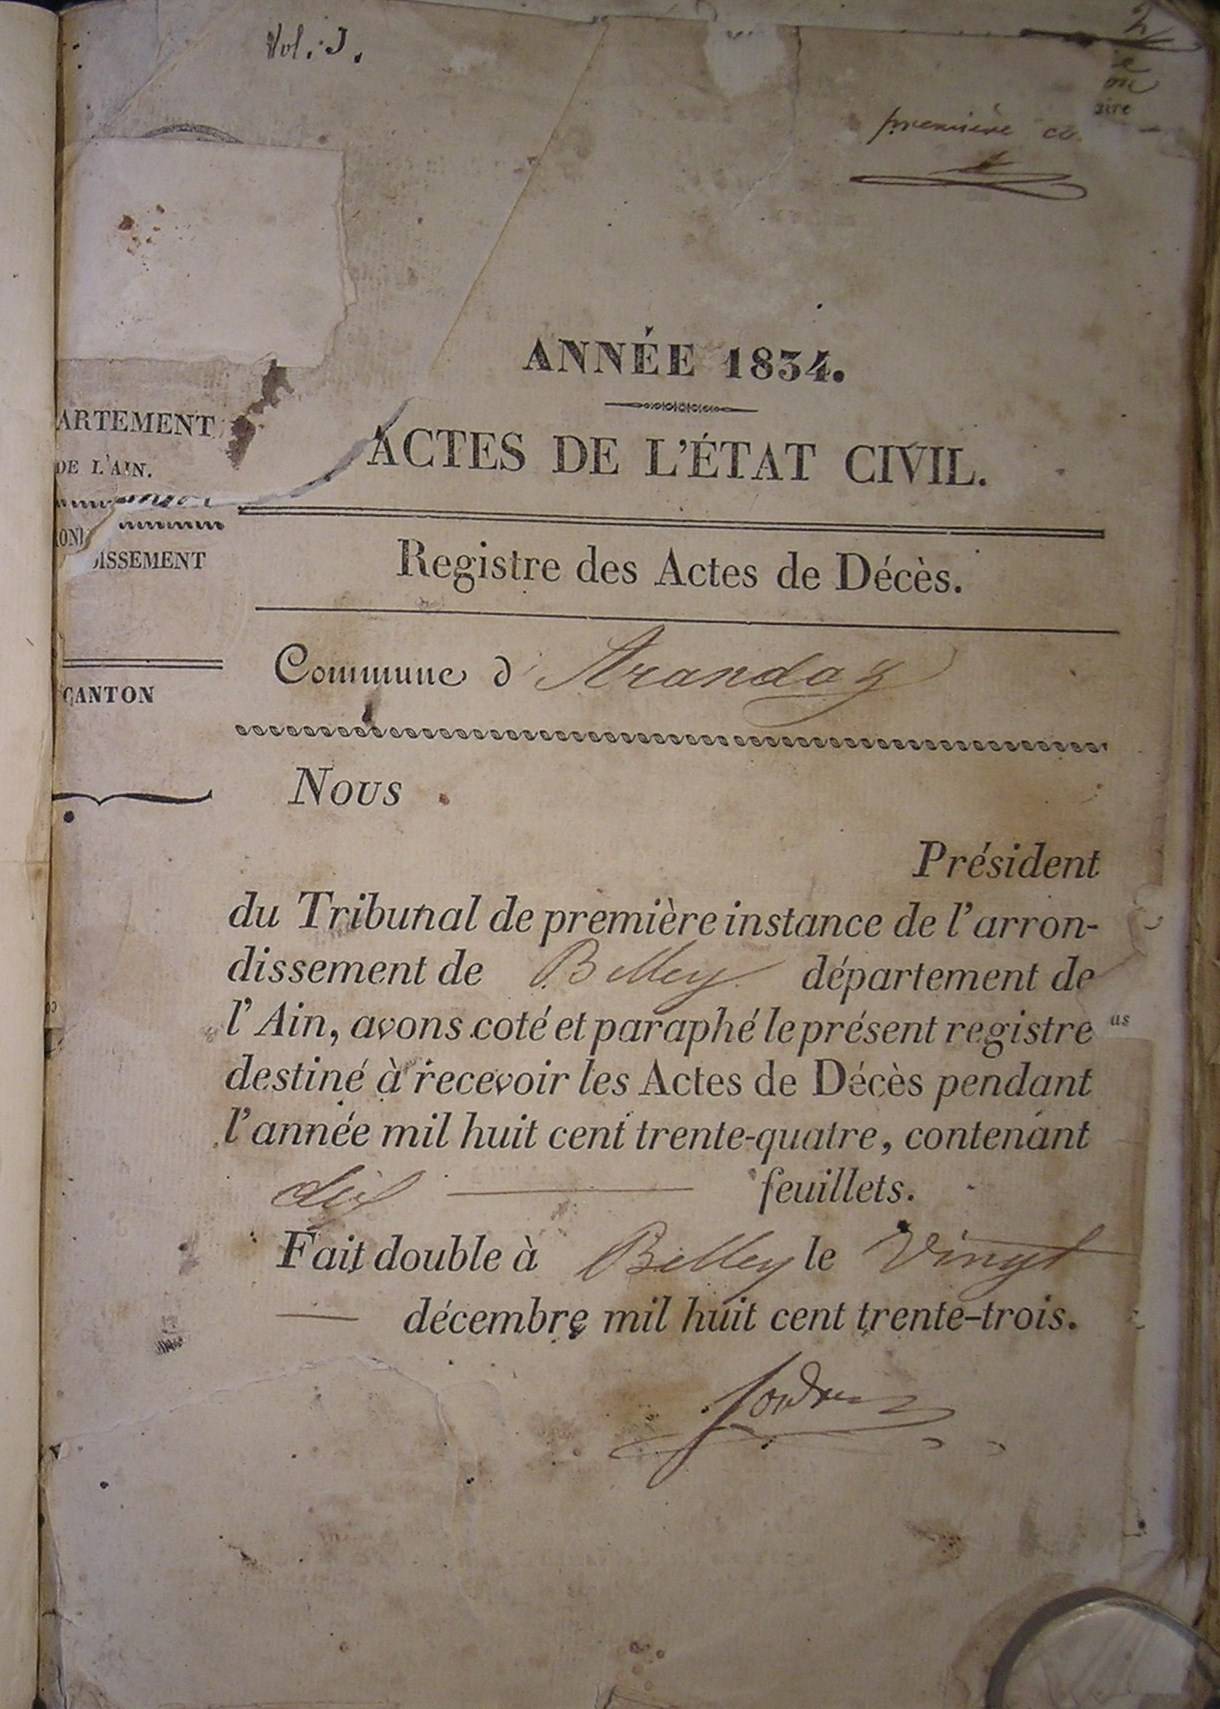 Vol. J.
première
ANNÉE 1834.
ACTES DE L'ÉTAT CIVIL.
ARTEMENT
DE L'AIN.
ISSEMENT
CANTON
Registre des Actes de Décès.
Commune d'Arandaz
Nous
Président
du Tribunal de première instance de l'arron-
dissement de Belley département de
l'Ain, avons coté et paraphé le présent registre
destiné à recevoir les Actes de Décès pendant
l'année mil huit cent trente-quatre, contenant
dix feuillets.
Fait double à Belley le Vingt
décembre mil huit cent trente-trois.